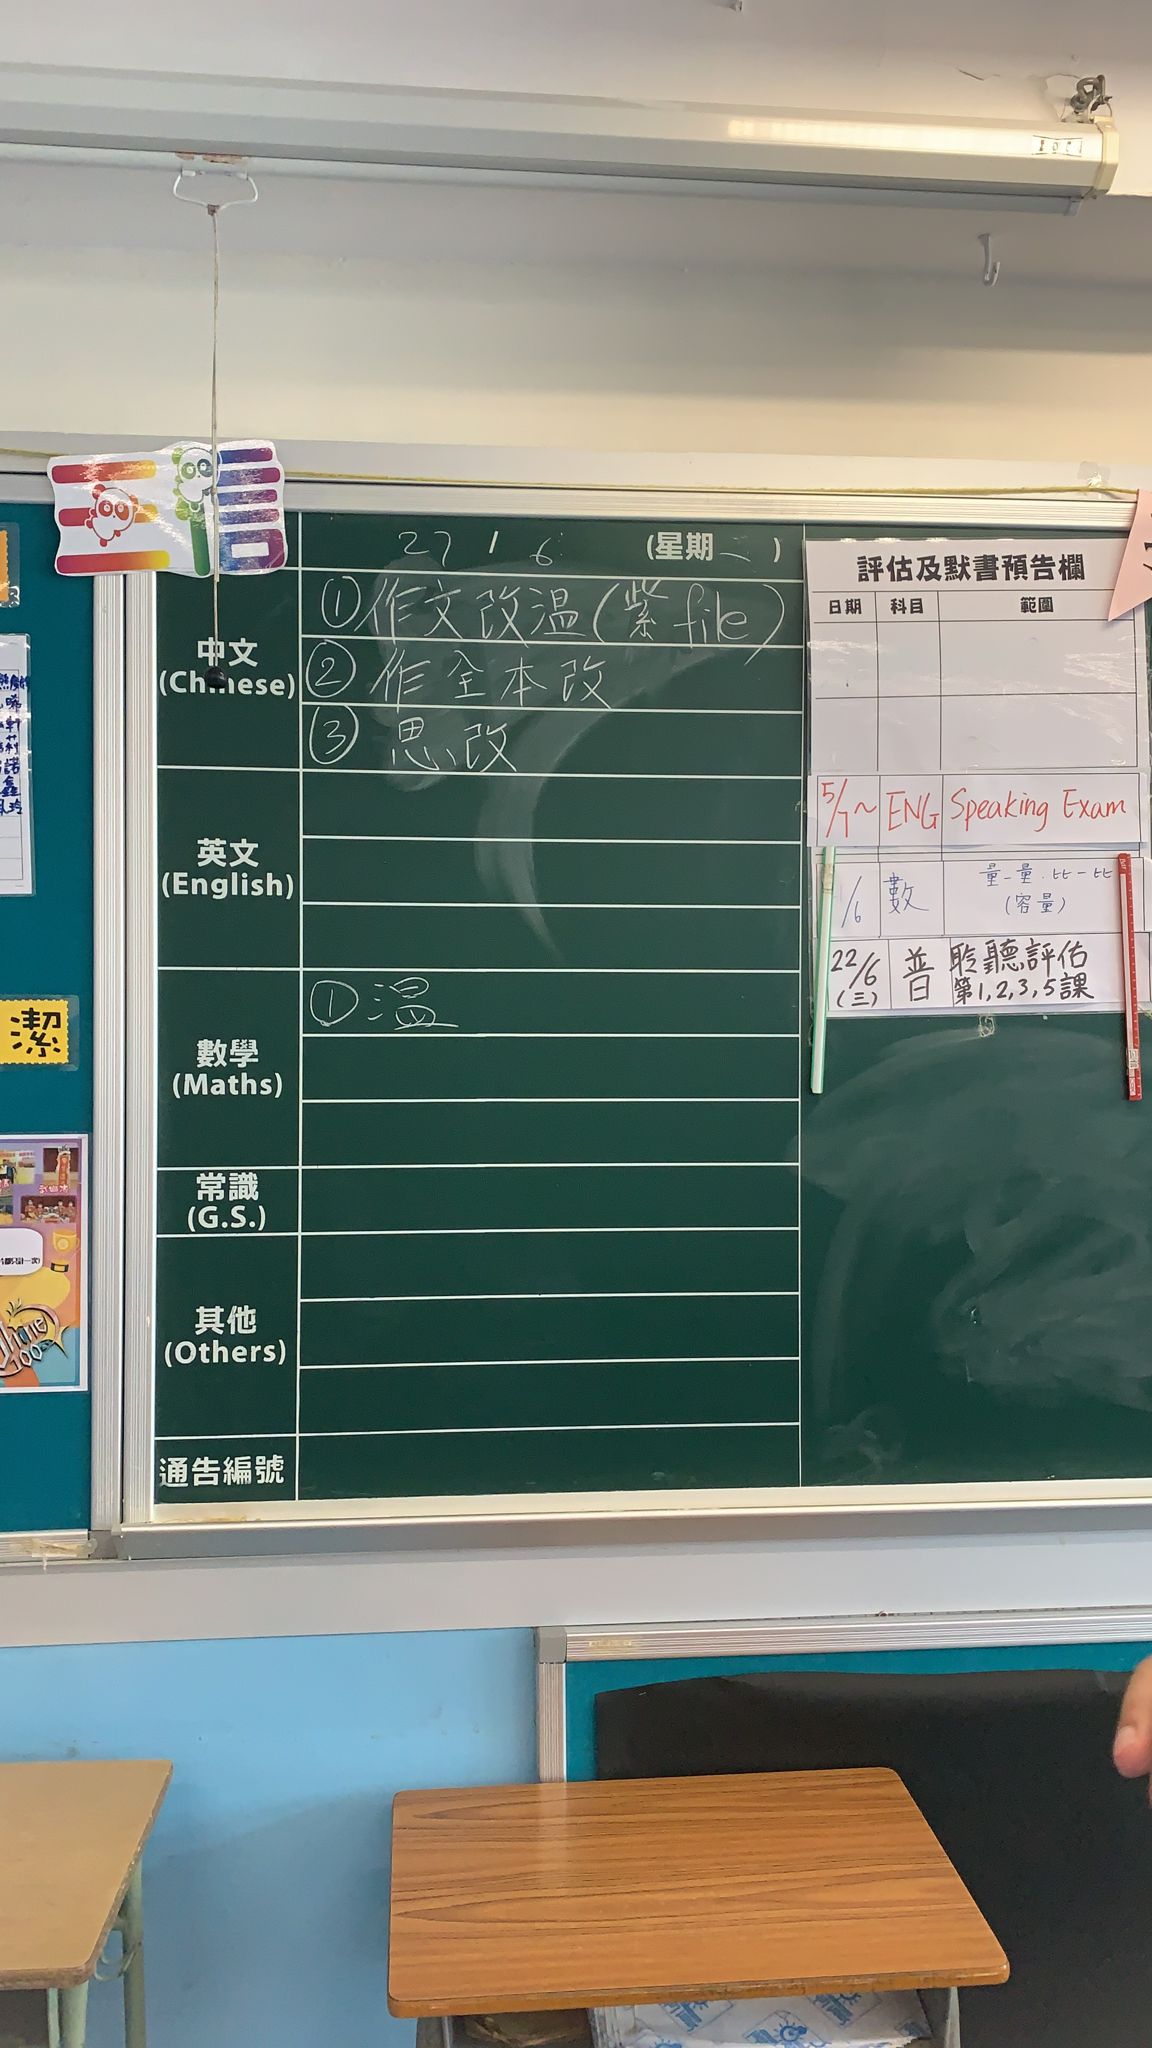 27 / 6 (星期二)
中文
(Chinese)
①作文改温(紫file)
②作全本改
③思改
英文
(English)
數學
(Maths)
①温
常識
(G.S.)
其他
(Others)
通告編號
評估及默書預告欄
日期 科目 範圍
5/7~ ENG Speaking Exam
/6 數 量-量.
(容量)
22/6 普 聆聽評估
(三) 第1,2,3,5課
潔